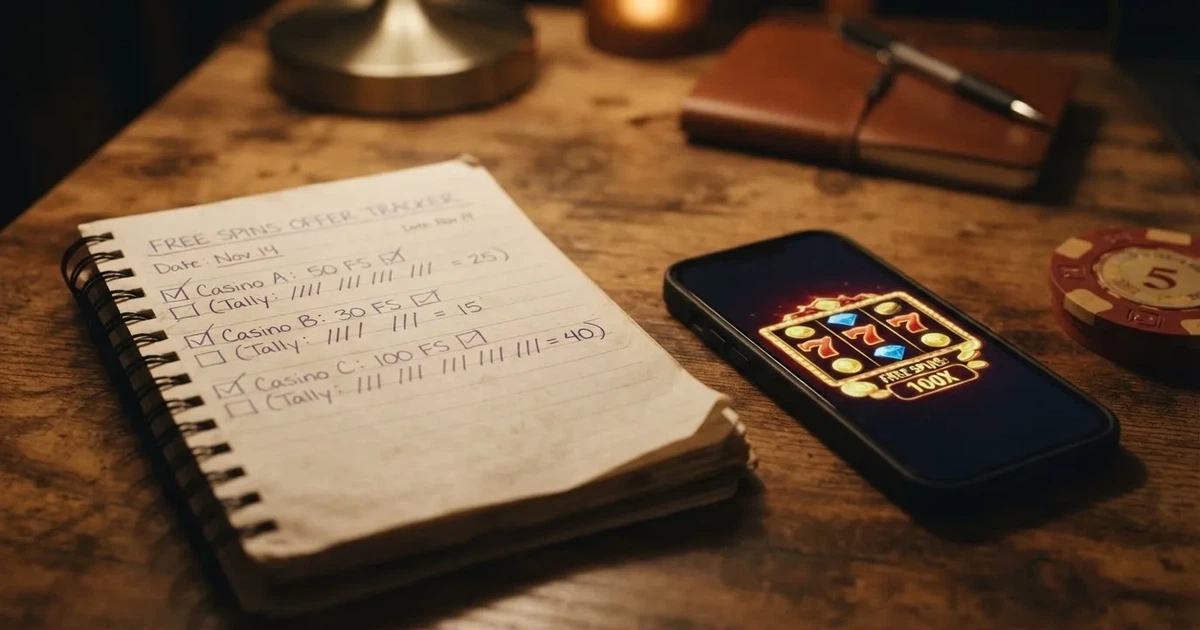 FREE SPINS OFFER TRACKER
Date: Nov 14
Date: Nov
☑ Casino A: 50 FS ☑
☐ (Tally: //// /// /// /// /// = 25)
☑ Casino B: 30 FS ☑
☐ (Tally: //// /// = 15
☑ Casino C: 100 FS ☑
☐ (Tally: /// /// /// /// /// /// = 40)
FREE SPINS:
100X
777
5